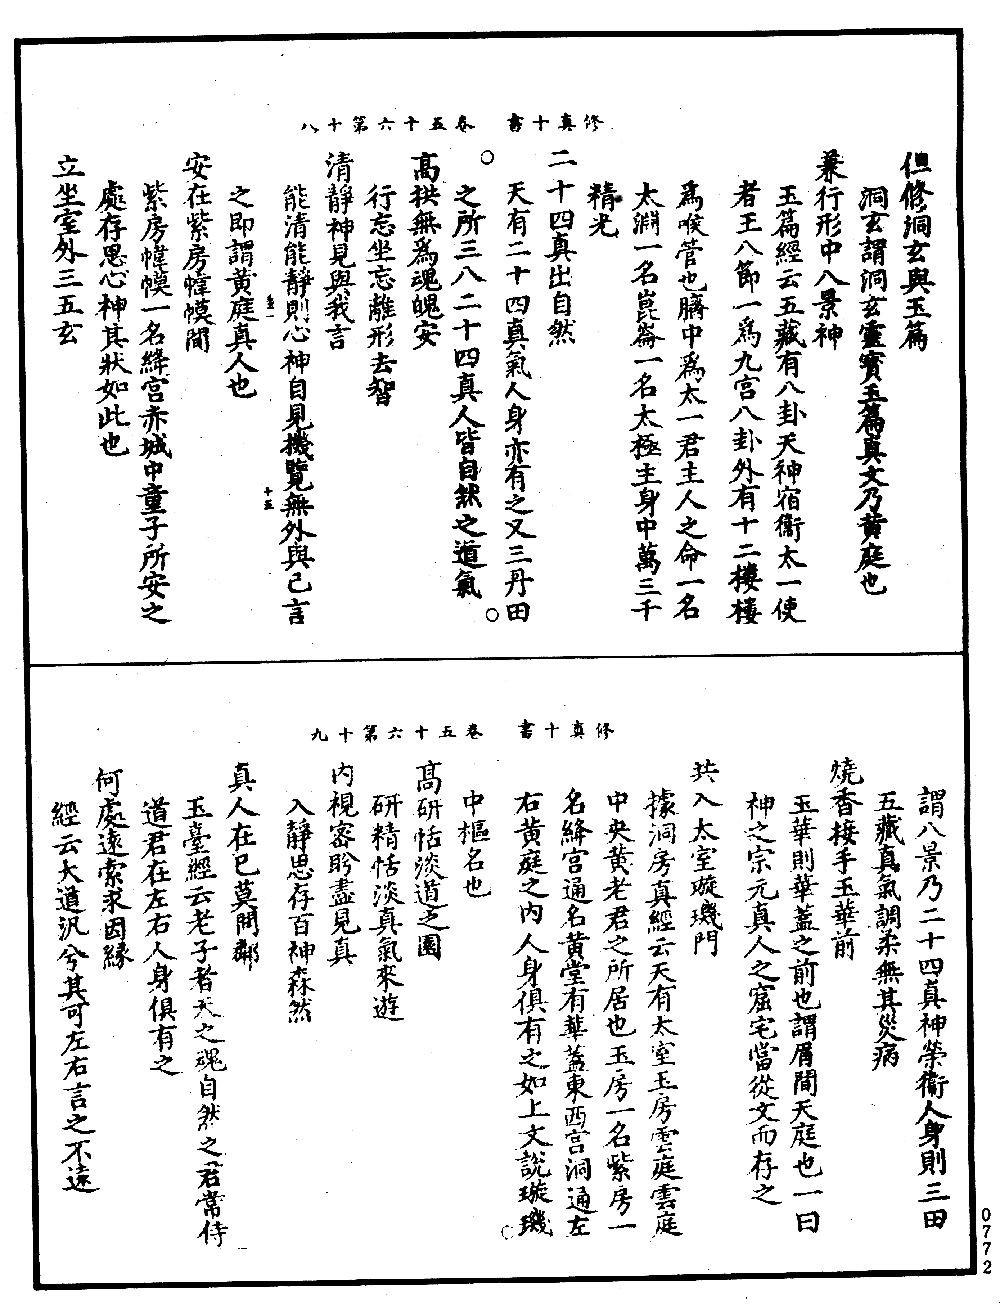 修真十書　卷五十六第十八
但修洞玄與玉篇
洞玄謂洞玄靈寶玉篇真文乃黄庭也
兼行形中八景神
玉篇經云五藏有八卦天神宿衞太一使
者王八節一爲九宫八卦外有十二樓樓
爲喉管也臍中爲太一君主人之命一名
太淵一名崑崙一名太極主身中萬三千
精光
二十四真出自然
天有二十四真氣人身亦有之又三丹田
之所三八二十四真人皆自然之道氣
高拱無爲魂魄安
行忘坐忘離形去智
清靜神見與我言
能清能靜則心神自見機覽無外與己言
之即謂黄庭真人也
安在紫房幃幙間
紫房幃幙一名絳宫赤城中童子所安之
處存思心神其狀如此也
立坐室外三五玄
十五
修真十書　卷五十六第十九
謂八景乃二十四真神榮衞人身則三田
五藏真氣調柔無其災病
燒香接手玉華前
玉華則華蓋之前也謂眉間天庭也一曰
神之宗元真人之窟宅當從文而存之
共入太室璇璣門
據洞房真經云天有太室玉房雲庭雲庭
中央黄老君之所居也玉房一名紫房一
名絳宫通名黄堂有華蓋東西宫洞通左
右黄庭之内人身俱有之如上文說璇璣
中樞名也
高研恬淡道之園
研精恬淡真氣來遊
内視密盼盡見真
入靜思存百神森然
真人在己莫問鄰
玉臺經云老子者天之魂自然之君常侍
道君在左右人身俱有之
何處遠索求因緣
經云大道汎兮其可左右言之不遠
0772